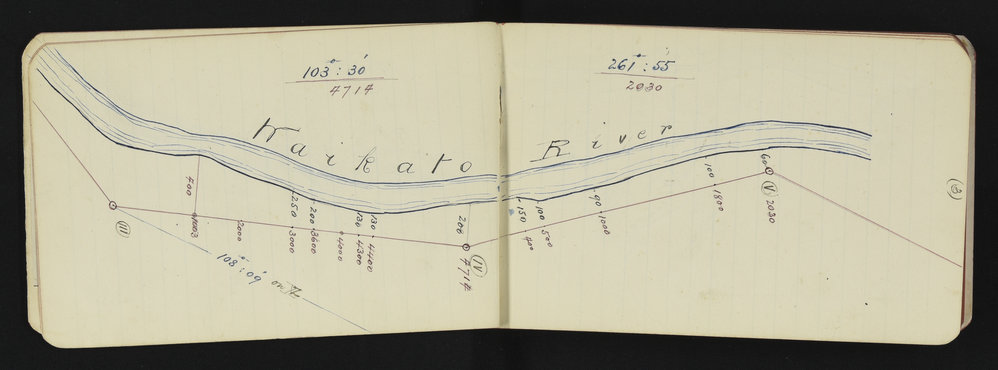 103° : 30'
4714
261° : 55
2030
Waikato River
400
1003
2000
250
3000
200
3600
4000
130
4300
130
4400
200
4714
150
400
100
500
90
1000
100
1800
60
2030
III
IV
V
3
108° : 09' on